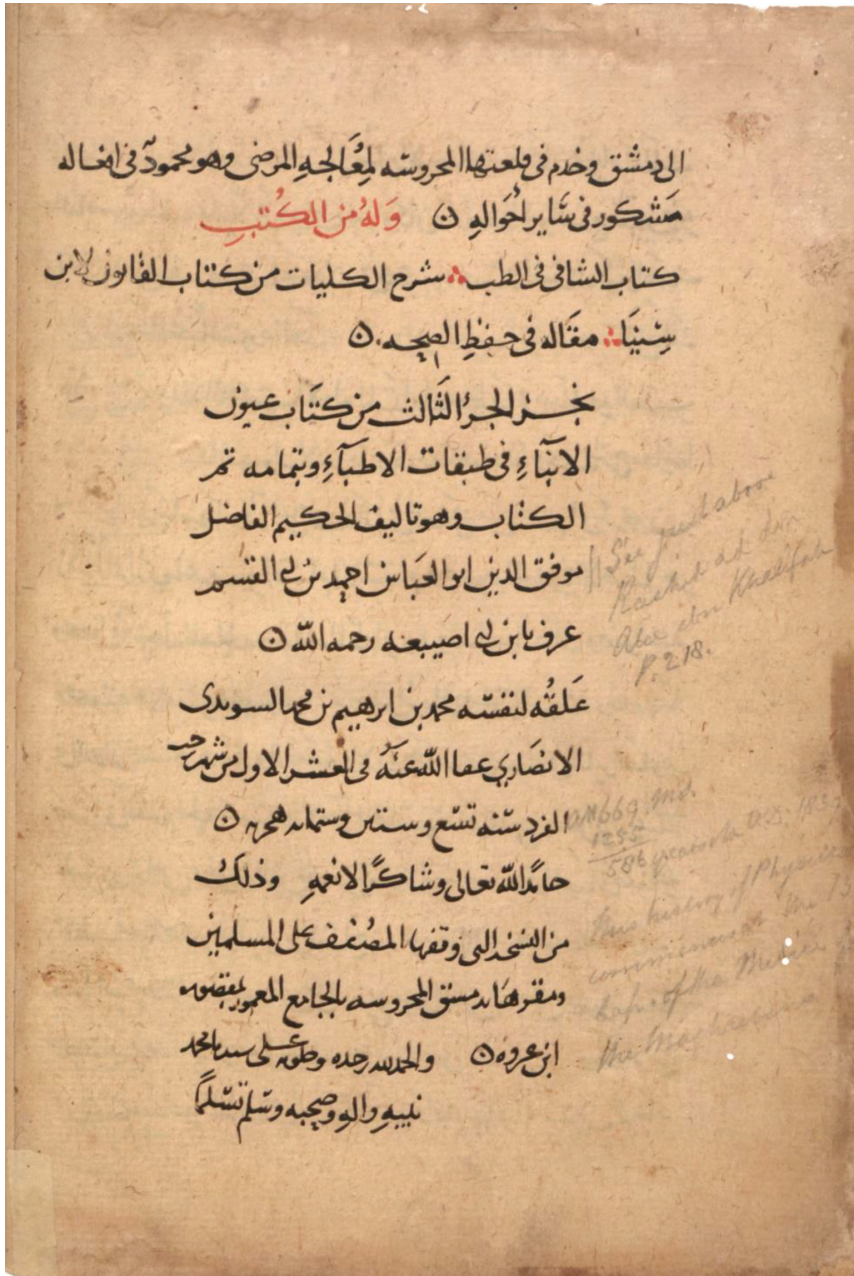 الى دمشق وخدم فى قلعتها المحروسه لِمُعَالجةِ المرضى وهو محمودٌ فى افعاله
مَشكور فى سَاير اَحوَالهِ ن وَلهُ من الكُتبِ
كتاب الشافى فى الطب شرح الكليات من كتاب القانون لابن
سِينَا مقَاله فى حفظِ الصحه ن
نجز الجزء الثالث من كتَاب عيون
الانبَآءِ فى طبقات الاطبَآءِ وبتمامه تم
الكتاب وهو تاليف الحكيم الفاضل
موفق الدين ابو العبَاس احمد بن ابى القسم
عرف بابن ابى اصيبعه رحمه الله ن
عَلقُه لنفسه محمد بن ابرهيم بن محمد السويدى
الانصَاري عفا الله عَنهُ فى العشر الاول من شهر رجب
الفرد سنه تسَع وستين وستمايه هجريه ن
حامدًا لله تعالى وشاكرًا لانعمهِ وذلك
من النسخه التى وقفها المصنف على المسلمين
ومقرهَا بدمشق المحروسه بالجامع المعمور بمقصوره
ابن عروه ن والحمد لله وحده وصلى على سيدنا محمد
نبيهِ والهِ وصحبه وسَلم تسليمًا
|| See just above
Rashid ad-din
Abu ibn Khalifah
P. 218.
AH 669. Md.
1255
586 years to A.D. 1839
This history of Physicians
commences at the 13
Cap. of the Medici
the Maghrebins